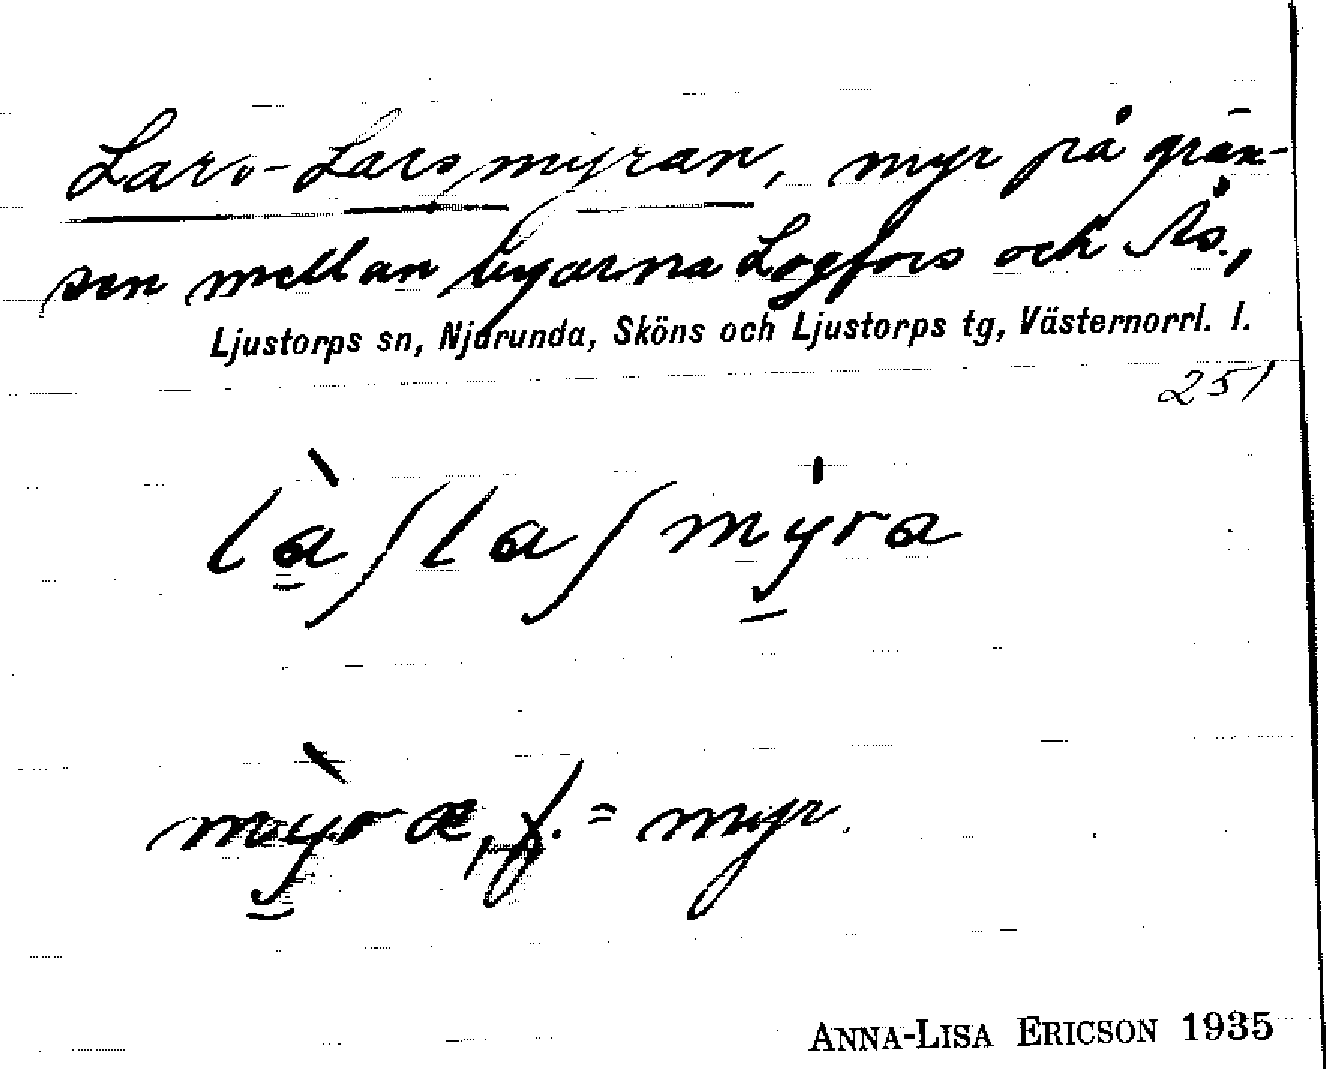 Lars-Larsmyran, myr på grän-
sen mellan byarna Logfors och Ås.,
Ljustorps sn, Njurunda, Sköns och Ljustorps tg, Västernorrl. l.
251
là̱ʃlaʃmy̱̍ra
mỳ̱ræ, f. = myr.
ANNA-LISA ERICSON 1935